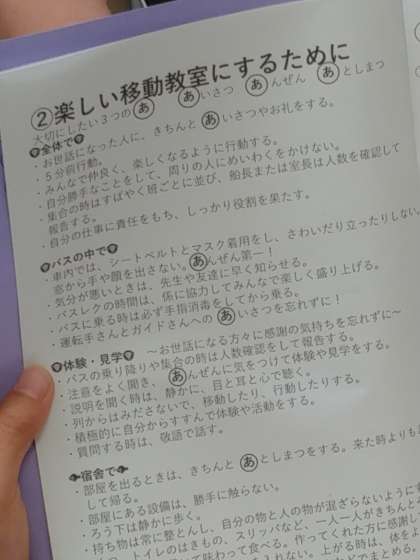 ②楽しい移動教室にするために
大切にしたい3つのあ あいさつ あんぜん あとしまつ
♥全体で♥
・お世話になった人に、きちんとあいさつやお礼をする。
・5分前行動。
・みんなで仲良く、楽しくなるように行動する。
・自分勝手なことをして、周りの人にめいわくをかけない。
・集合の時はすばやく班ごとに並び、船長または室長は人数を確認して
報告する。
・自分の仕事に責任をもち、しっかり役割を果たす。
♥バスの中で♥
・車内では、シートベルトとマスク着用をし、さわいだり立ったりしない。
窓から手や顔を出さない。あんぜん第一！
・気分が悪いときは、先生や友達に早く知らせる。
・バスレクの時間は、係に協力してみんなで楽しく盛り上げる。
・バスに乗る時は必ず手指消毒をしてから乗る。
・運転手さんとガイドさんへのあいさつを忘れずに！
♥体験・見学♥ ～お世話になる方々に感謝の気持ちを忘れずに～
・バスの乗り降りや集合の時は人数確認をして報告する。
・注意をよく聞き、あんぜんに気をつけて体験や見学をする。
・説明を聞く時は、静かに、目と耳と心で聴く。
・列からはみださないで、移動したり、行動したりする。
・積極的に自分からすすんで体験や活動をする。
・質問する時は、敬語で話す。
宿舎で
・部屋を出るときは、きちんとあとしまつをする。来た時よりも
して帰る。
・部屋にある設備は、勝手に触らない。
・ろう下は静かに歩く。
・持ち物は常に整とんし、自分の物と人の物が混ざらないように
トイレのはきもの、スリッパなど、一人一人がきちんと
て味わって食べる。作ってくれた方に感謝し
上がる時は、体を